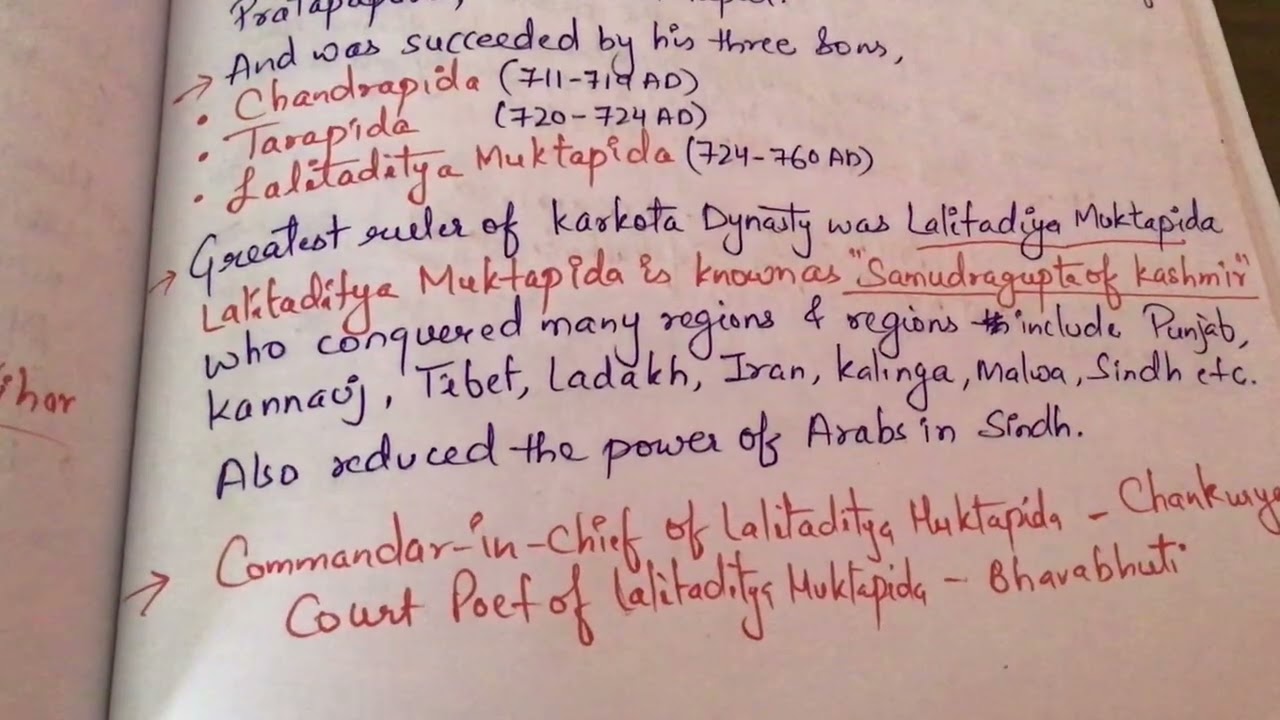 And was succeeded by his three sons,
→ • Chandrapida (711-719 AD)
• Tarapida (720-724 AD)
• Lalitaditya Muktapida (724-760 AD)
Greatest ruler of Karkota Dynasty was Lalitadiya Muktapida
→ Lalitaditya Muktapida is known as "Samudragupta of Kashmir"
who conquered many regions & regions include Punjab,
Kannauj, Tibet, Ladakh, Iran, Kalinga, Malwa, Sindh etc.
Also reduced the power of Arabs in Sindh.
Commandar-in-Chief of Lalitaditya Muktapida - Chankunya
→ Court Poet of Lalitaditya Muktapida - Bhavabhuti